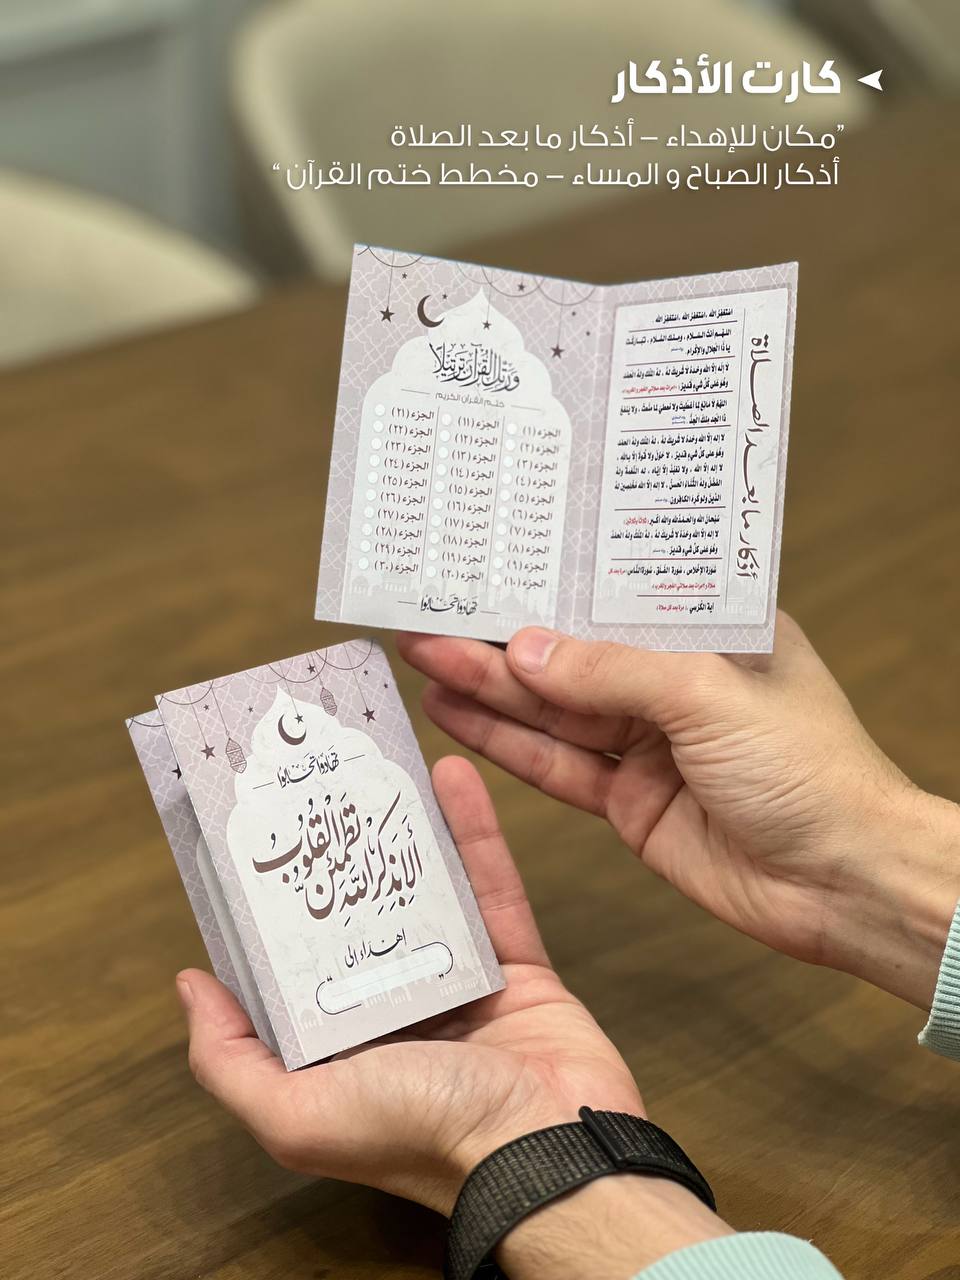 كارت الأذكار
"مكان للإهداء – أذكار ما بعد الصلاة
أذكار الصباح و المساء – مخطط ختم القرآن"
أذكار ما بعد الصلاة
استغفر الله ، استغفر الله ، استغفر الله
اللهم أنت السلام ، ومنك السلام ، تباركت
يا ذا الجلال والإكرام
لا إله إلا الله وحده لا شريك له ، له الملك وله الحمد
وهو على كل شيء قدير
اللهم لا مانع لما أعطيت ولا معطي لما منعت ، ولا ينفع
ذا الجد منك الجد
لا إله إلا الله وحده لا شريك له ، له الملك وله الحمد
وهو على كل شيء قدير ، لا حول ولا قوة إلا بالله ،
لا إله إلا الله ، ولا نعبد إلا إياه ، له النعمة وله
الفضل وله الثناء الحسن ، لا إله إلا الله مخلصين له
الدين ولو كره الكافرون
سبحان الله والحمدلله والله أكبر (ثلاثا وثلاثين)
لا إله إلا الله وحده لا شريك له ، له الملك وله الحمد
وهو على كل شيء قدير
سورة الإخلاص ، سورة الفلق ، سورة الناس
آية الكرسي
ورتل القرآن ترتيلا
ختم القرآن الكريم
الجزء (١) الجزء (١١) الجزء (٢١)
الجزء (٢) الجزء (١٢) الجزء (٢٢)
الجزء (٣) الجزء (١٣) الجزء (٢٣)
الجزء (٤) الجزء (١٤) الجزء (٢٤)
الجزء (٥) الجزء (١٥) الجزء (٢٥)
الجزء (٦) الجزء (١٦) الجزء (٢٦)
الجزء (٧) الجزء (١٧) الجزء (٢٧)
الجزء (٨) الجزء (١٨) الجزء (٢٨)
الجزء (٩) الجزء (١٩) الجزء (٢٩)
الجزء (١٠) الجزء (٢٠) الجزء (٣٠)
تهادوا تحابوا
تهادوا تحابوا
ألا بذكر الله تطمئن القلوب
اهداء الى